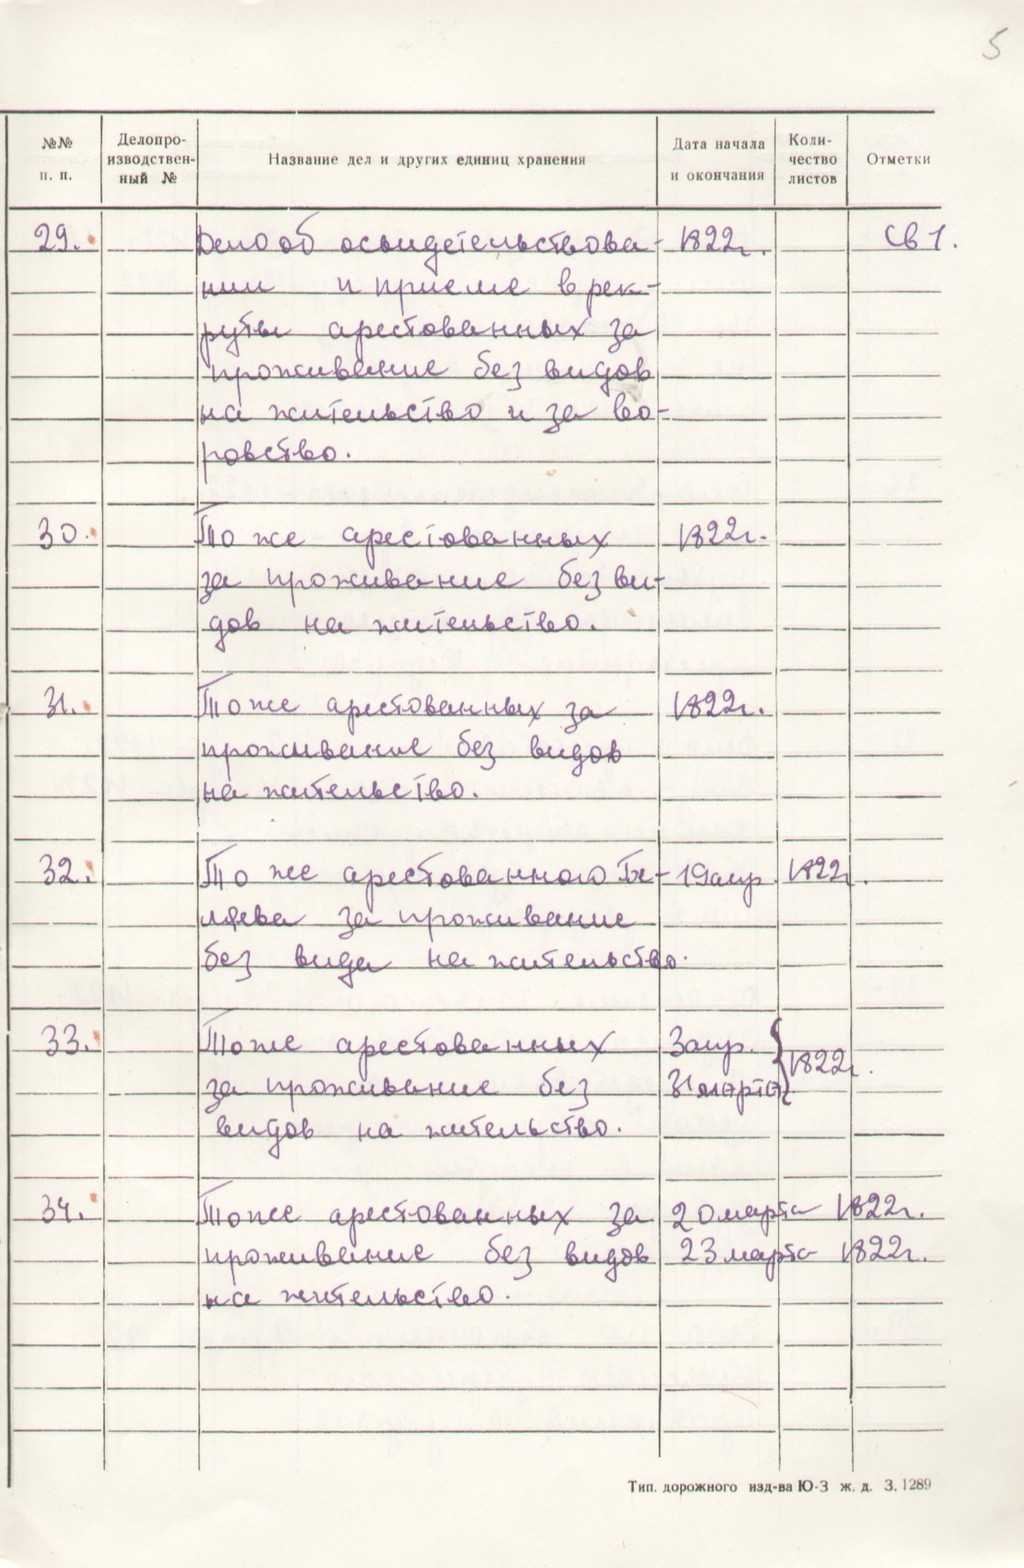 5
№№ п. п.
Делопро-
изводствен-
ный №
Название дел и других единиц хранения
Дата начала
и окончания
Коли-
чество
листов
Отметки
29. Дело об освидетельствова- 1822г. Св 1.
нии и приеме в рек-
руты арестованных за
проживание без видов
на жительство и за во-
ровство.
30. То же арестованных 1822г.
за проживание без ви-
дов на жительство.
31. То же арестованных за 1822г.
проживание без видов
на жительство.
32. То же арестованного 19 апр. 1822г.
за проживание
без вида на жительство.
33. То же арестованных 3 апр. 1822г.
за проживание без 31 марта
видов на жительство.
34. То же арестованных за 20 марта 1822г.
проживание без видов 23 марта 1822г.
на жительство.
Тип. дорожного изд-ва Ю-З ж. д. З. 1289